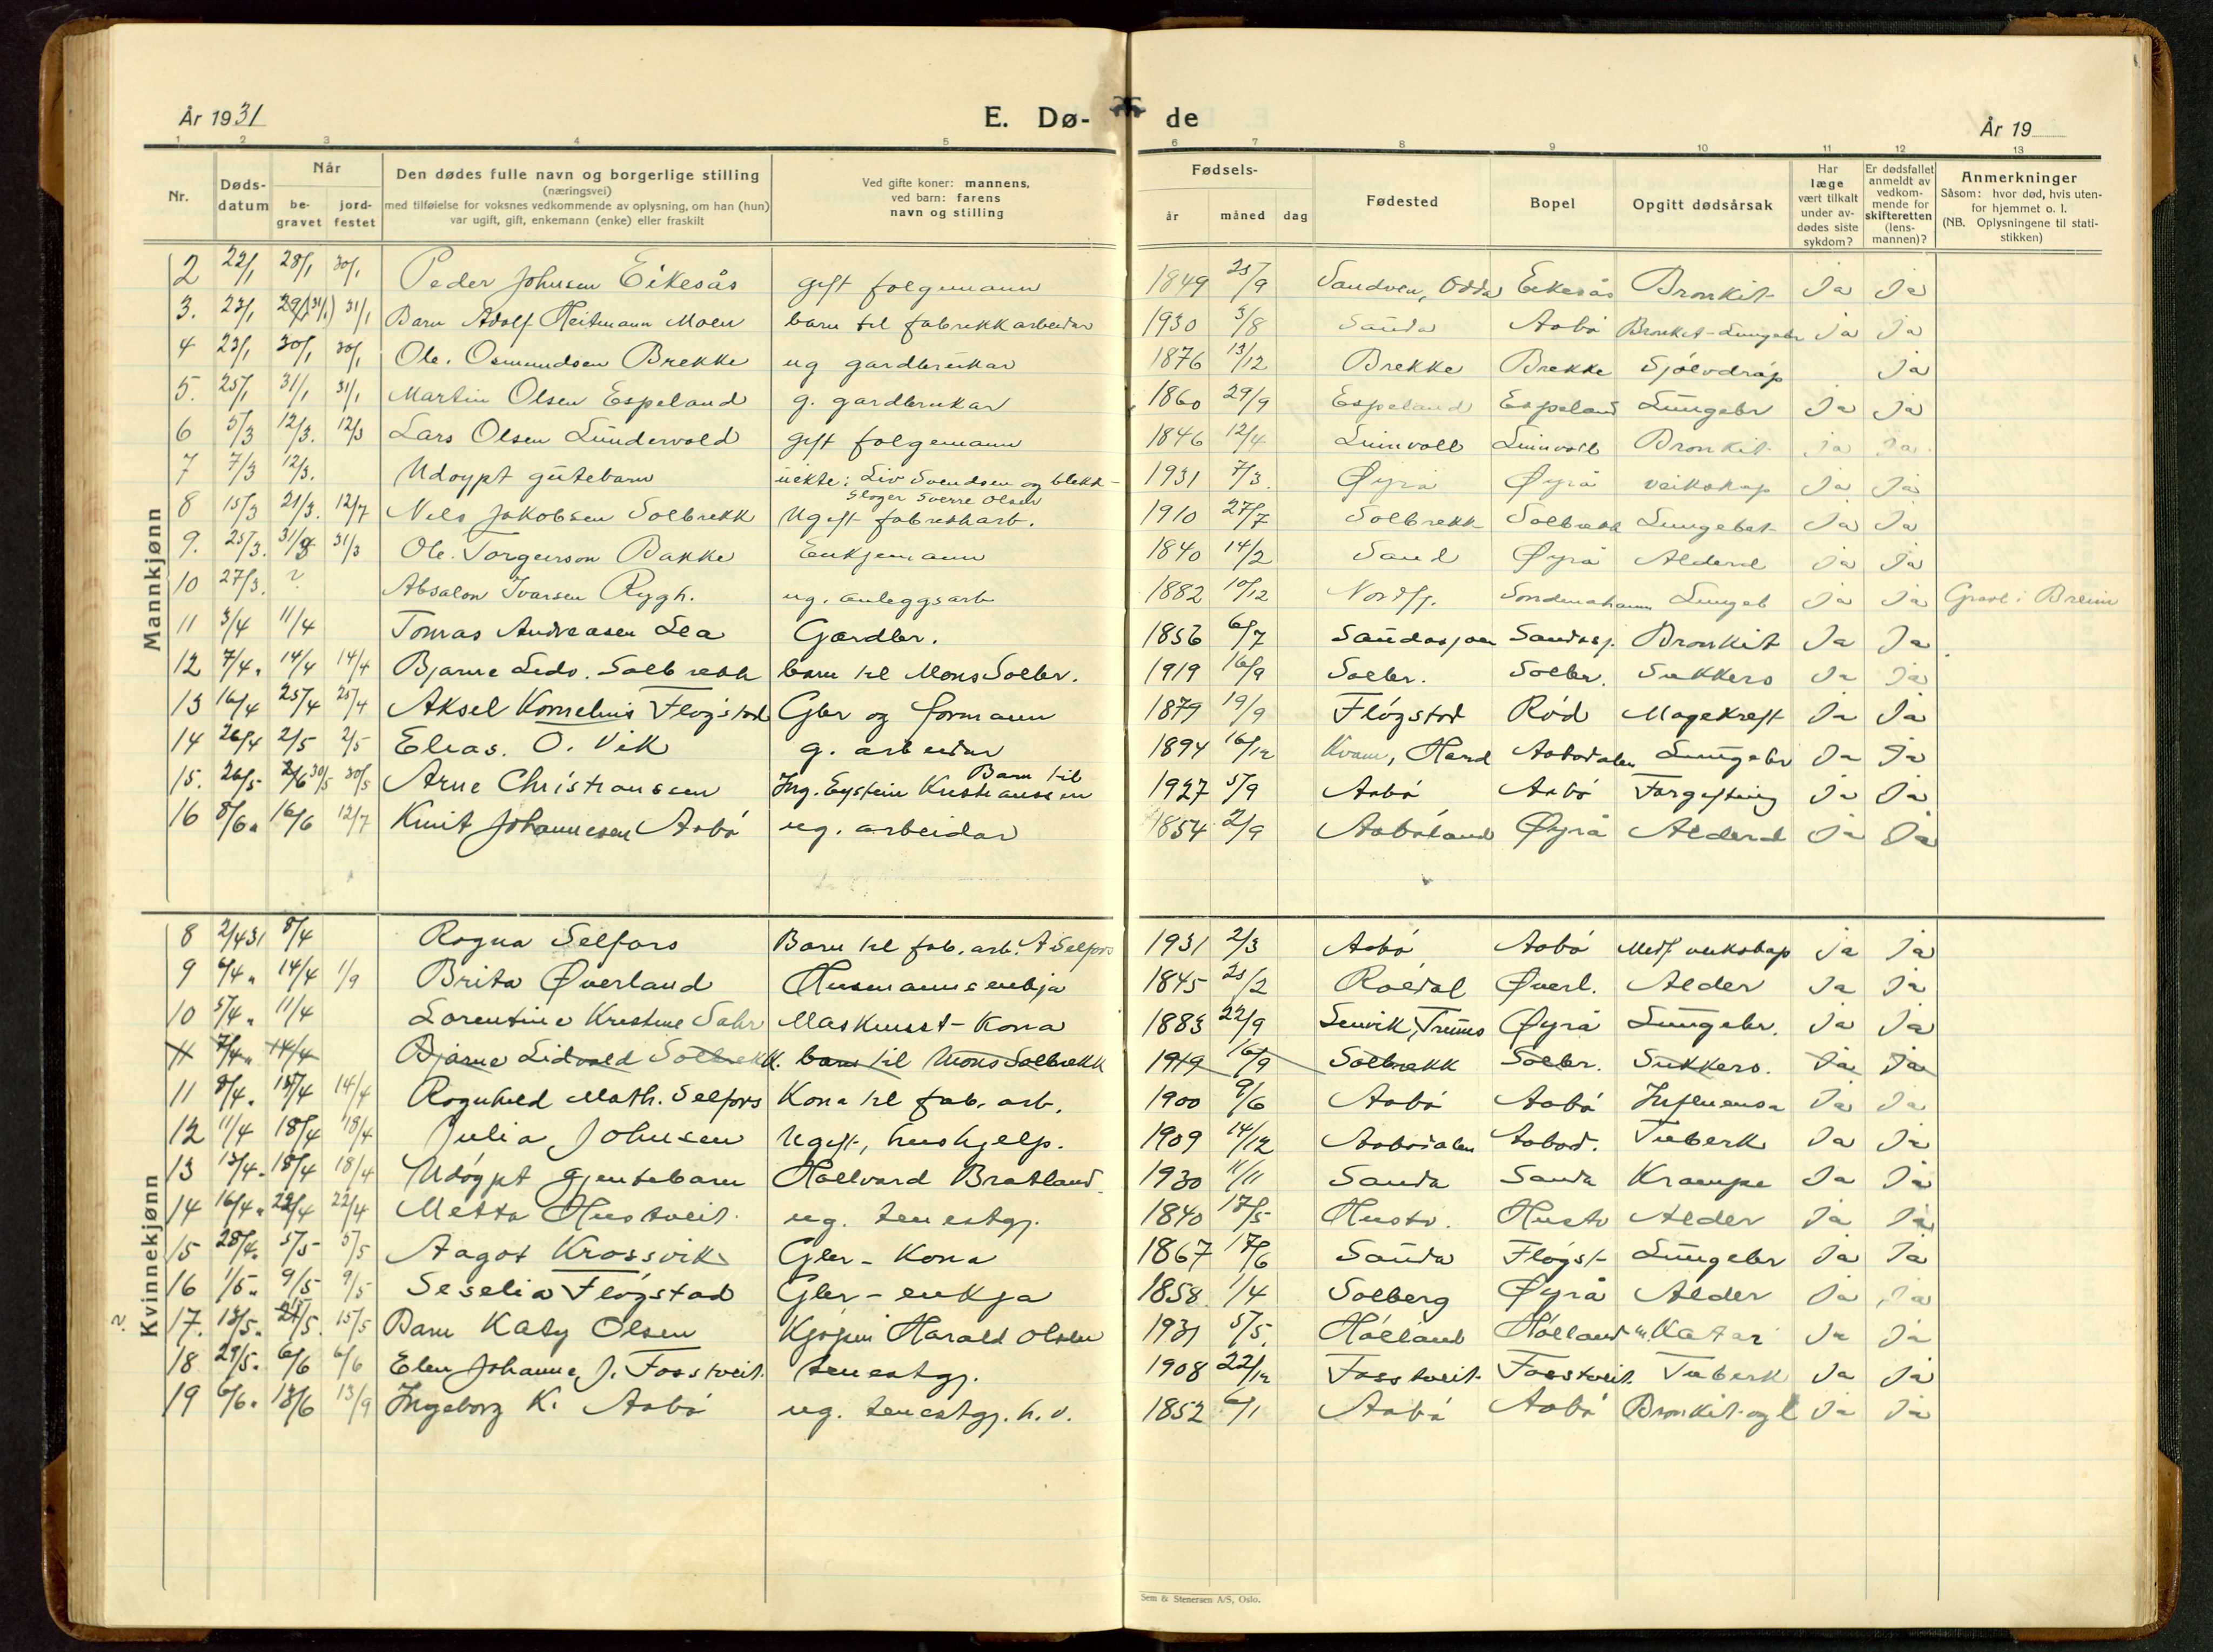 År 1931
E. Dø-
de
År 19
1 2 3 4 5 6 7 8 9 10 11 12 13
Nr.
Døds-
datum
Når
be-
gravet
jord-
festet
Den dødes fulle navn og borgerlige stilling
(næringsvei)
med tilføielse for voksnes vedkommende av oplysning, om han (hun)
var ugift, gift, enkemann (enke) eller fraskilt
Ved gifte koner: mannens,
ved barn: farens
navn og stilling
Fødsels-
år måned dag
Fødested
Bopel
Opgitt dødsårsak
Har
læge
vært tilkalt
under av-
dødes siste
sykdom?
Er dødsfallet
anmeldt av
vedkom-
mende for
skifteretten
(lens-
mannen)?
Anmerkninger
Såsom: hvor død, hvis uten-
for hjemmet o. l.
(NB. Oplysningene til stati-
stikken)
Mannkjønn
2 22/1 28/1 30/1 Peder Johnsen Eikesås gift folgemann 1849 25/9 Sandven, Odda Eikesås Bronkit Ja Ja
3. 23/1 29/1 (31/1) 31/1 Barn Adolf Heitmann Moen barn til fabrikkarbeidar 1930 3/8 Sauda Aabö Bronkit-Lungebr Ja Ja
4 23/1 30/1 30/1 Ole Osmundsen Brekke ug gardbrukar 1876 13/12 Brekke Brekke Sjölvdråp Ja
5. 25/1 31/1 31/1 Martin Olsen Espeland g. gardbrukar 1860 29/9 Espeland Espeland Lungebr Ja Ja
6 5/3 12/3. 12/3 Lars Olsen Lundervold gift folgemann 1846 12/4 Linnvoll Linnvoll Bronkit Ja Ja
7 7/3 12/3. Udøypt gutebarn uekte: Liv Svendsen og blekk-
slager Sverre Olsen 1931 7/3. Øyrå Øyrå veikskap Ja Ja
8 15/3 21/3. 12/7 Nils Jakobsen Solbrekk Ugift fabrikkarb. 1910 27/7 Solbrekk Solbrekk Lungebet Ja Ja
9. 25/3. 31/3 31/3 Ole Torgerson Bakke Enkjemann 1840 14/2 Sand Øyrå Alderd Ja Ja
10 27/3. ? Absalon Ivarsen Rygh. ug. anleggsarb 1882 10/12 Nordfj. Sondenahamn Lungeb Ja Ja Gravl i Breim
11 3/4 11/4 Tomas Andreasen Lea Gardbr. 1856 6/7 Saudasjøen Saudasj. Bronkit Ja Ja
12 7/4 " 14/4 14/4 Bjarne Lidv. Solbrekk barn til Mons Solbr. 1919 16/9 Solbr. Solbr. Sukkers Ja Ja
13 16/4 25/4 25/4 Aksel Kornelius Flögstad Gbr og formann 1879 19/9 Flögstad Röd Magekreft Ja Ja
14 26/4 2/5 2/5 Elias. O. Vik g. arbeidar 1894 16/12 Kvam, Hard Aabödalen Lungebr Ja Ja
15. 26/5 2/6 30/5 30/5 Arne Christianssen Barn til
Ing. Eystein Kristianssen 1927 5/9 Aabö Aabö Forgiftning Ja Ja
16 8/6 " 16/6 12/7 Knut Johannesen Aabö ug. arbeidar 1854 2/9 Aaböland Øyrå Alderd Ja Ja
Kvinnekjønn
8 2/4 31 8/4 Ragna Selfors Barn til fab. arb. A Selfors 1931 2/3 Aabö Aabö Medf veikskap Ja Ja
9 6/4 " 14/4 1/9 Brita Øverland Husmannsenkja 1845 25/2 Roldal Øverl. Alder Ja Ja
10 5/4 " 11/4 Lorentine Kristine Sahr Maskinist-kona 1883 22/9 Lenvik, Troms Øyrå Lungebr. Ja Ja
11 7/4 " 14/4 Bjarne Lidvald Solbrekk. barn til Mons Solbrekk 1919 16/9 Solbrekk Solbr. Sukkers. Ja Ja
11 8/4 " 15/4 14/4 Ragnhild Math. Selfors Kona til fab. arb. 1900 9/6 Aabö Aabö Influensa Ja Ja
12 11/4 18/4 18/4 Julia Johnsen Ugift, hushjelp. 1909 14/12 Aabödalen Aaböd. Tuberk Ja Ja
13 13/4 " 18/4 18/4 Udöypt gjentebarn Hallvard Bratland 1930 11/11 Sauda Sauda Krampe Ja Ja
14 16/4 " 22/4 22/4 Metta Hustveit. ug. tenestgj. 1840 17/5 Hustv. Hustv Alder Ja Ja
15 28/4 " 5/5 5/5 Aagot Krossvik Gbr-kona 1867 17/6 Sauda Flögst- Lungebr Ja Ja
16 1/5 " 9/5 9/5 Seselia Flögstad Gbr-enkja 1858 1/4 Solberg Øyrå Alder Ja Ja
? 17. 13/5 " 15/5 Barn Katy Olsen Kjöpm Harald Olsen 1931 5/5. Hölland Hölland m. Katar Ja Ja
18 29/5 " 6/6 6/6 Elen Johanne J. Fosstveit. tenestgj. 1908 22/12 Fosstveit Fosstveit Tuberk Ja Ja
19 6/6 " 13/6 13/9 Ingeborg K. Aabö ug. tenestgj. h. v. 1852 6/1 Aabö Aabö Bronkit og l Ja Ja
Sem & Stenersen A/S, Oslo.